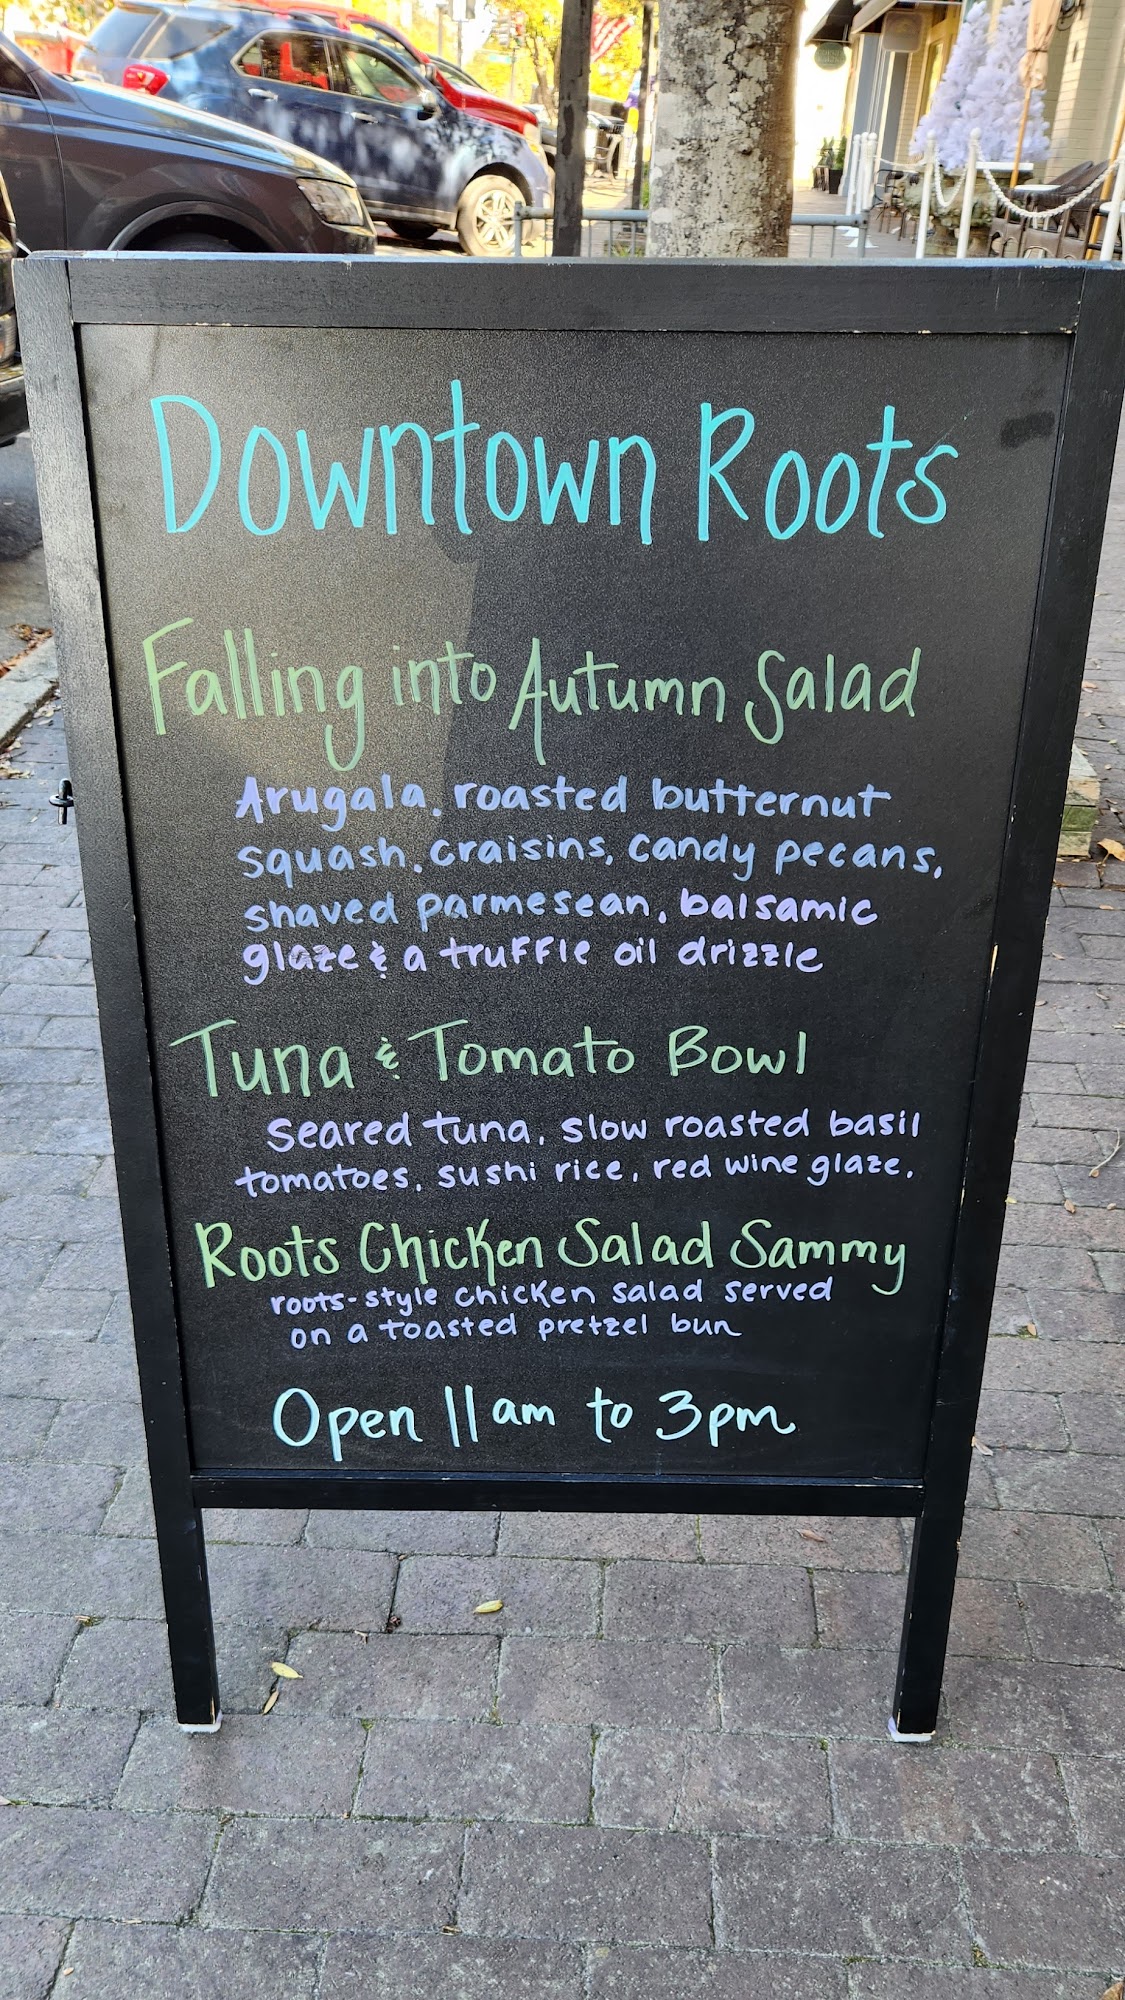 Downtown Roots
Falling into Autumn Salad
Arugala, roasted butternut
squash, craisins, candy pecans,
shaved parmesean, balsamic
glaze & a truffle oil drizzle
Tuna & Tomato Bowl
seared tuna, slow roasted basil
tomatoes, sushi rice, red wine glaze.
Roots Chicken Salad Sammy
roots-style chicken salad served
on a toasted pretzel bun
Open 11am to 3pm